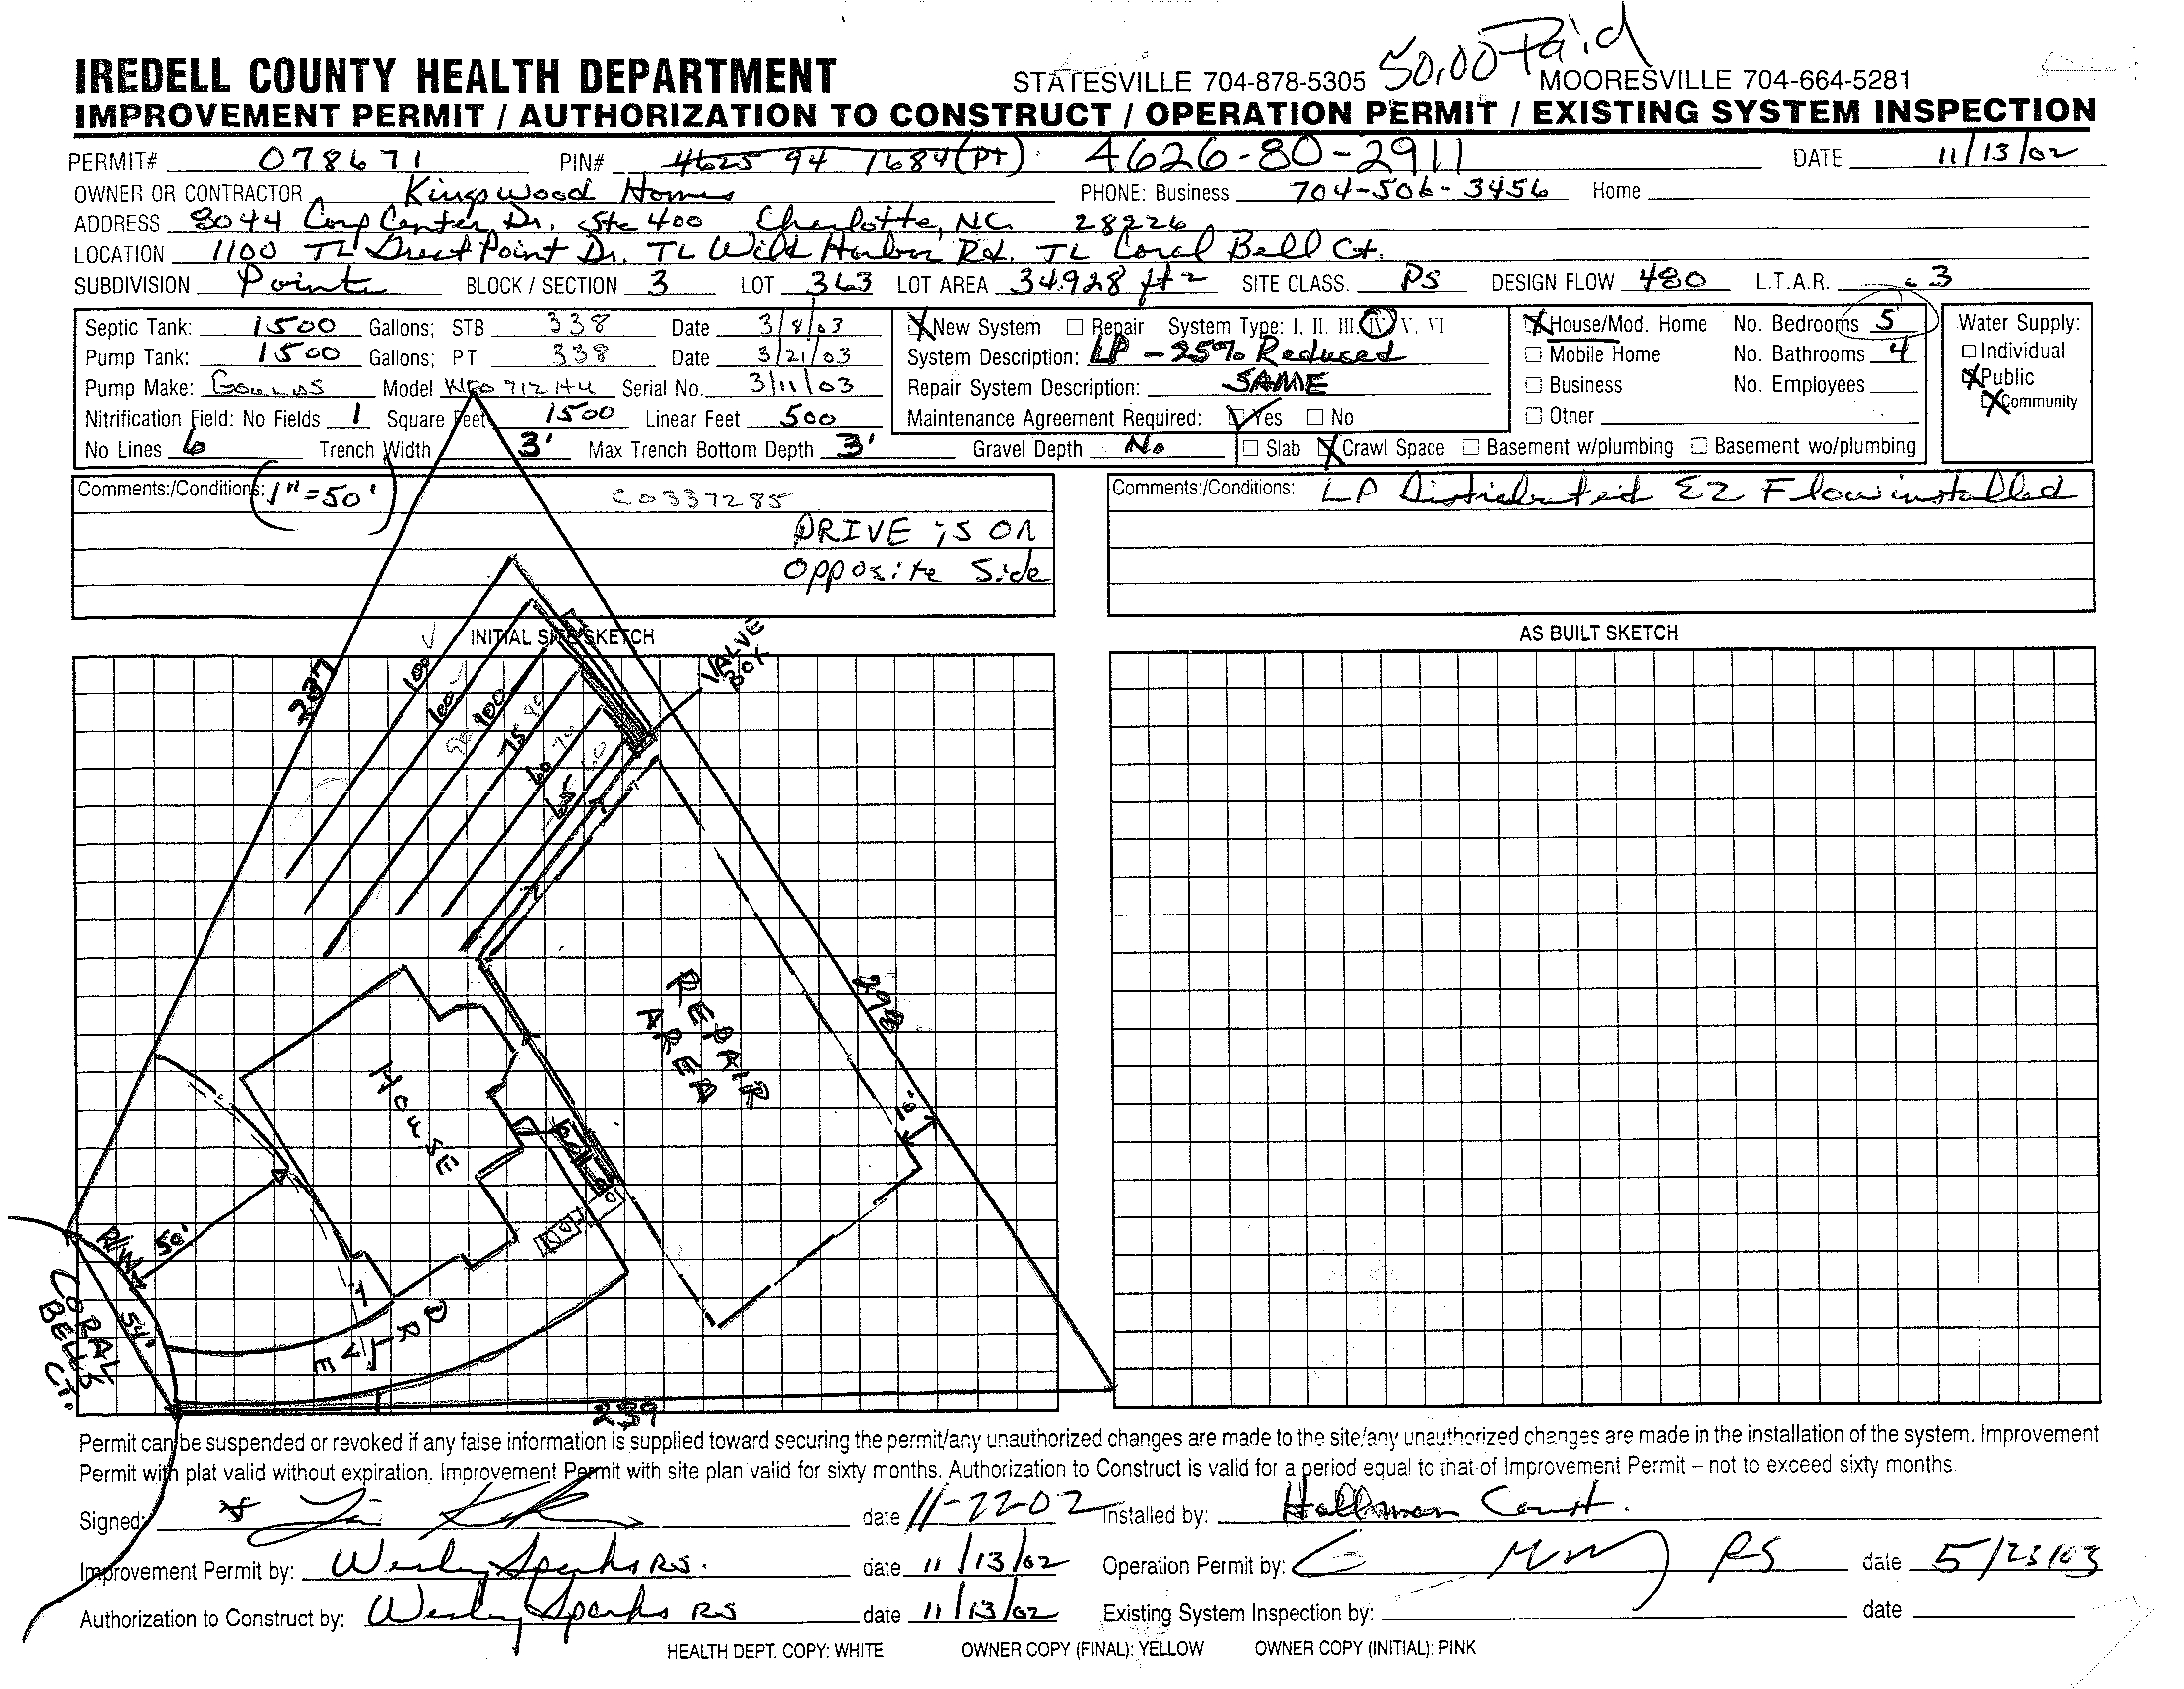 50.00 Paid
IREDELL COUNTY HEALTH DEPARTMENT STATESVILLE 704-878-5305 MOORESVILLE 704-664-5281
IMPROVEMENT PERMIT / AUTHORIZATION TO CONSTRUCT / OPERATION PERMIT / EXISTING SYSTEM INSPECTION
PERMIT# 078671 PIN# 4625 94 1684 (Pt) 4626-80-2911 DATE 11/13/02
OWNER OR CONTRACTOR Kingswood Homes PHONE: Business 704-506-3456 Home
ADDRESS 8044 Corp Center Dr. Ste 400 Charlotte, NC 28226
LOCATION 1100 TL Point Dr. TL Wild Harbor Rd. TL Coral Bell Ct.
SUBDIVISION Pointe BLOCK / SECTION 3 LOT 363 LOT AREA 34,928 ft2 SITE CLASS. PS DESIGN FLOW 480 L.T.A.R. .3
Septic Tank: 1500 Gallons; STB 338 Date 3/8/03 X New System Repair System Type: I. II. III IV V. VI X House/Mod. Home No. Bedrooms 5 Water Supply:
Pump Tank: 1500 Gallons; PT 338 Date 3/21/03 System Description: LP - 25% Reduced Mobile Home No. Bathrooms 4 Individual
Pump Make: Goulds Model Serial No. 3/11/03 Repair System Description: SAME Business No. Employees X Public
Nitrification Field: No Fields 1 Square Feet 1500 Linear Feet 500 Maintenance Agreement Required: Yes No Other X Community
No Lines 6 Trench Width 3' Max Trench Bottom Depth 3' Gravel Depth No Slab X Crawl Space Basement w/plumbing Basement wo/plumbing
Comments:/Conditions: (1"=50') C0337285 Comments:/Conditions: LP Distributed EZ Flow installed
DRIVE is on
Opposite Side
INITIAL SITE SKETCH AS BUILT SKETCH
VALVE
BOX
100
100
100
75
60
65
REPAIR
AREA
HOUSE
10'
R/W
50'
54'
CORAL
BELLS
CT.
DRIVE
239
Permit can be suspended or revoked if any false information is supplied toward securing the permit/any unauthorized changes are made to the site/any unauthorized changes are made in the installation of the system. Improvement
Permit with plat valid without expiration. Improvement Permit with site plan valid for sixty months. Authorization to Construct is valid for a period equal to that of Improvement Permit – not to exceed sixty months.
Signed: date 11-22-02 Installed by: Const.
Improvement Permit by: Wesley Sparks RS. date 11/13/02 Operation Permit by: RS date 5/23/03
Authorization to Construct by: Wesley Sparks RS date 11/13/02 Existing System Inspection by: date
HEALTH DEPT. COPY: WHITE OWNER COPY (FINAL): YELLOW OWNER COPY (INITIAL): PINK